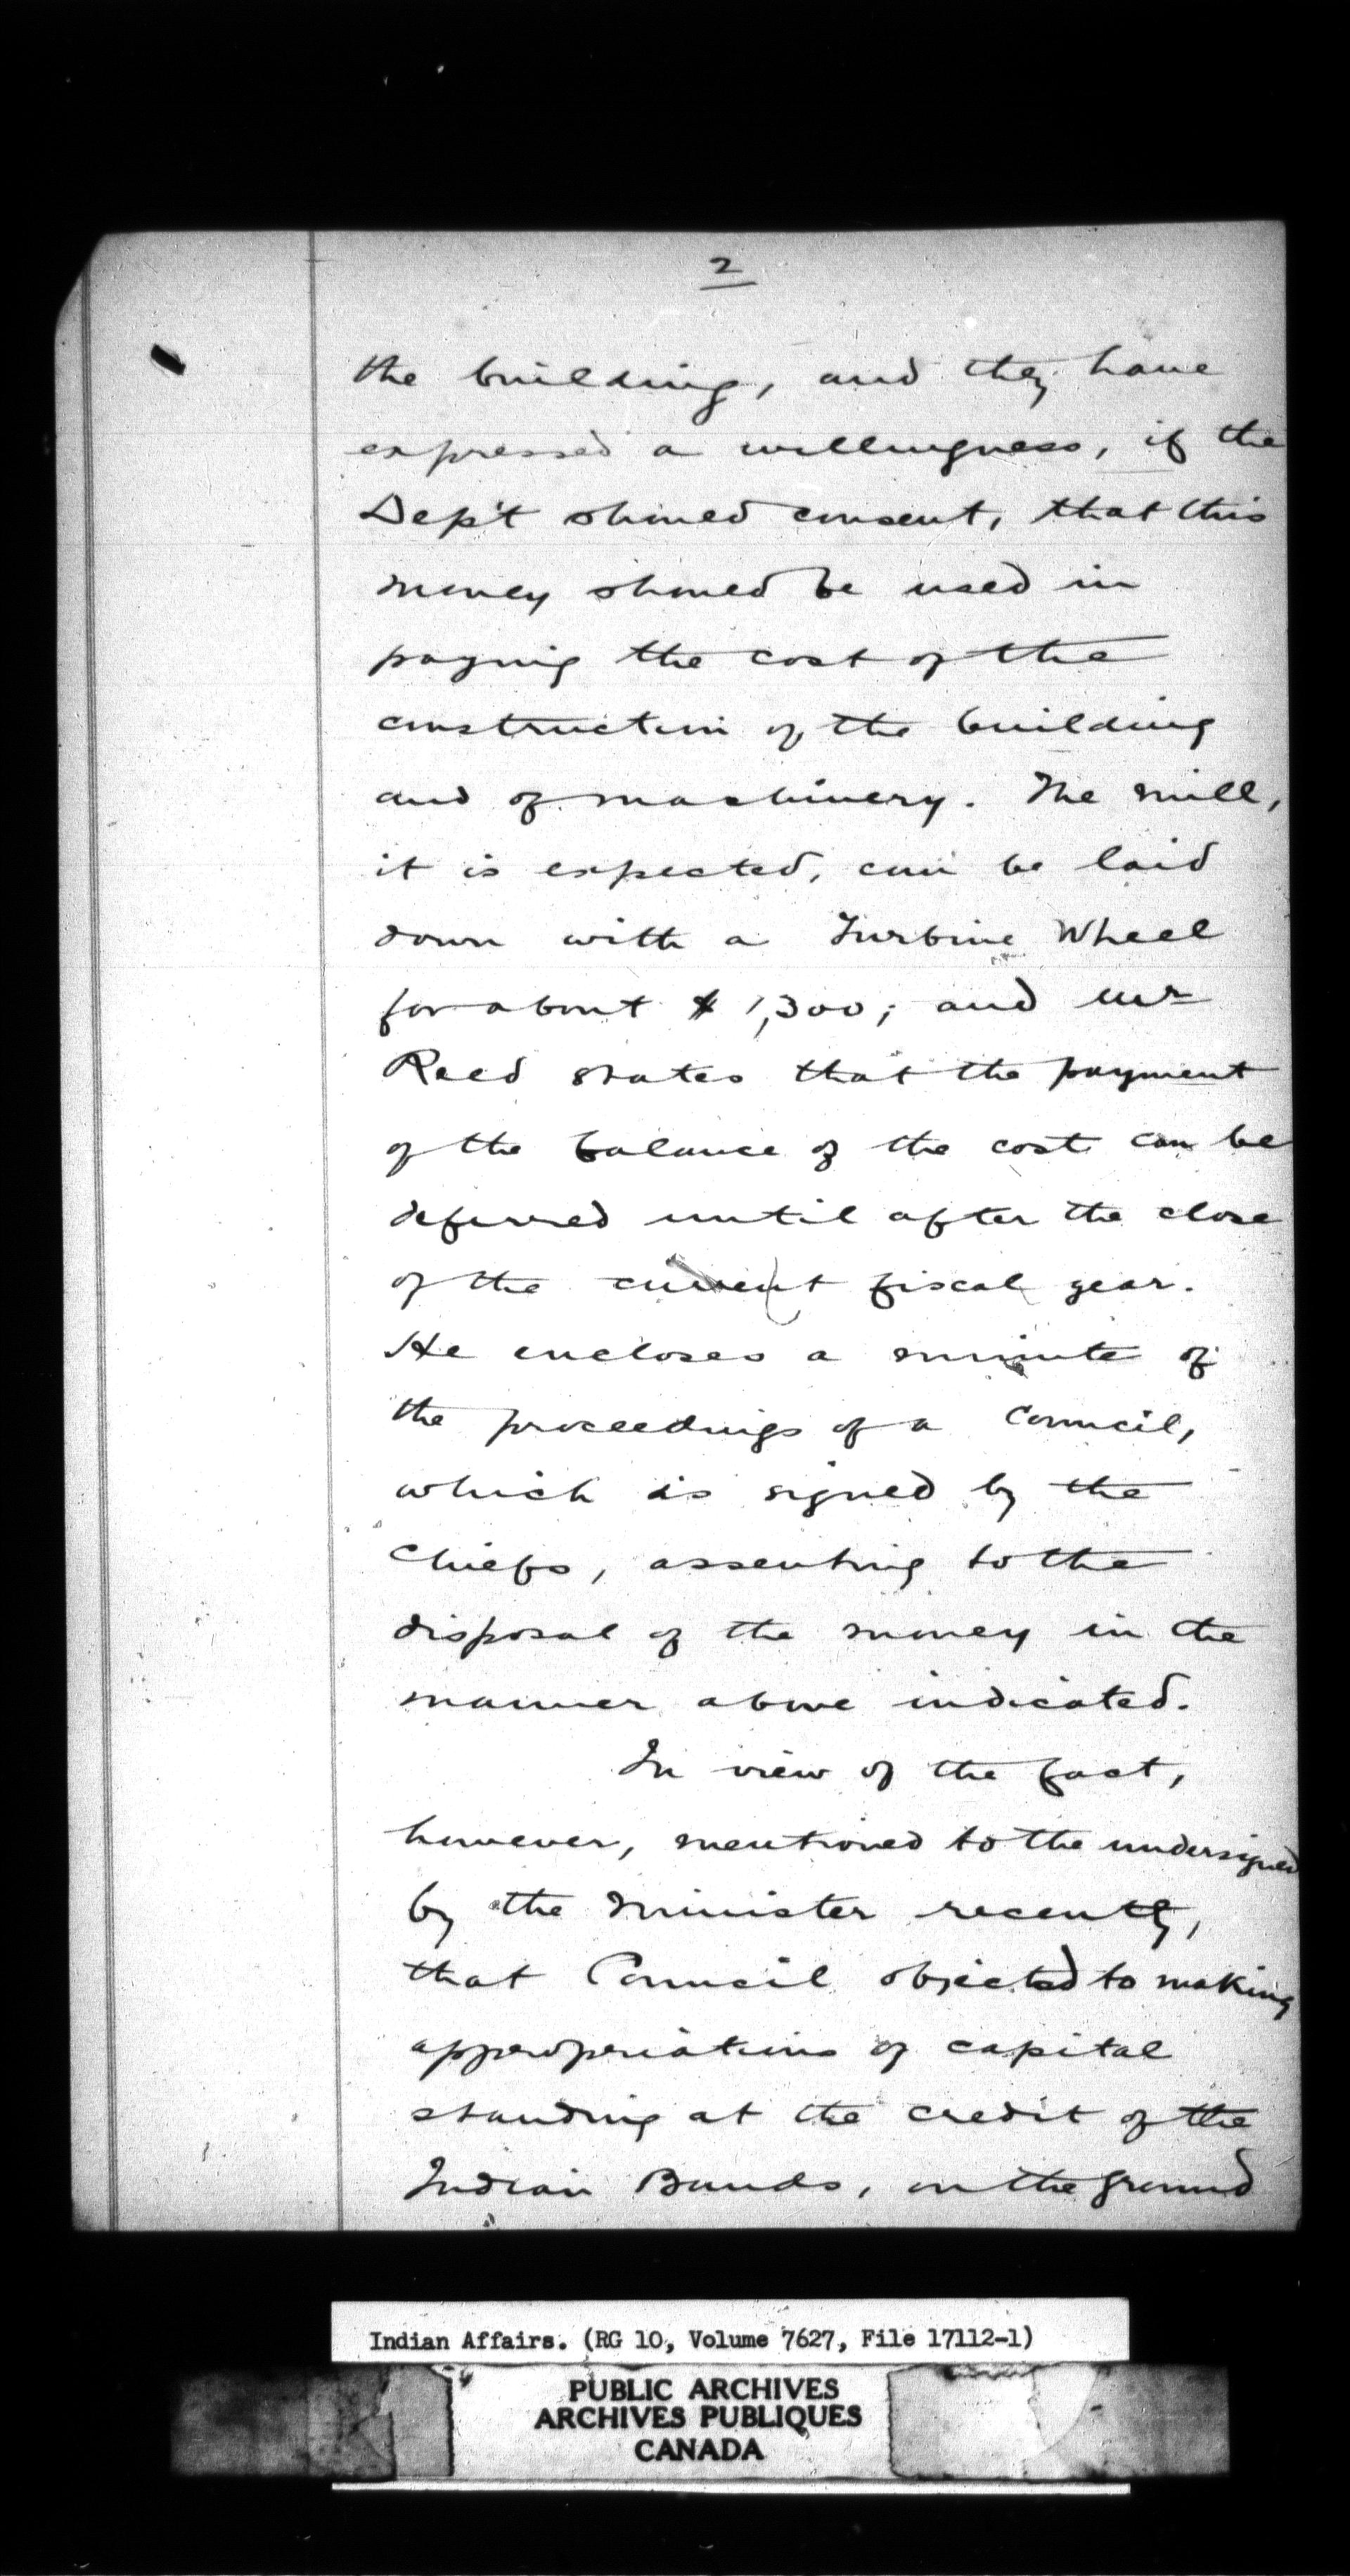 2
the building, and they have
expressed a willingness, if the
Dep't should consent, that this
money should be used in
paying the cost of the
construction of the building
and of machinery. The mill,
it is expected, can be laid
down with a Turbine Wheel
for about $1,300; and Mr
Reed states that the payment
of the balance of the cost can be
deferred until after the close
of the current fiscal year.
He encloses a minute of
the proceedings of a Council,
which is signed by the
Chiefs, assenting to the
disposal of the money in the
manner above indicated.
In view of the fact,
however, mentioned to the undersigned
by the Minister recently,
that Council objected to making
appropriations of capital
standing at the credit of the
Indian Bands, on the ground
Indian Affairs. (RG 10, Volume 7627, File 17112-1)
PUBLIC ARCHIVES
ARCHIVES PUBLIQUES
CANADA